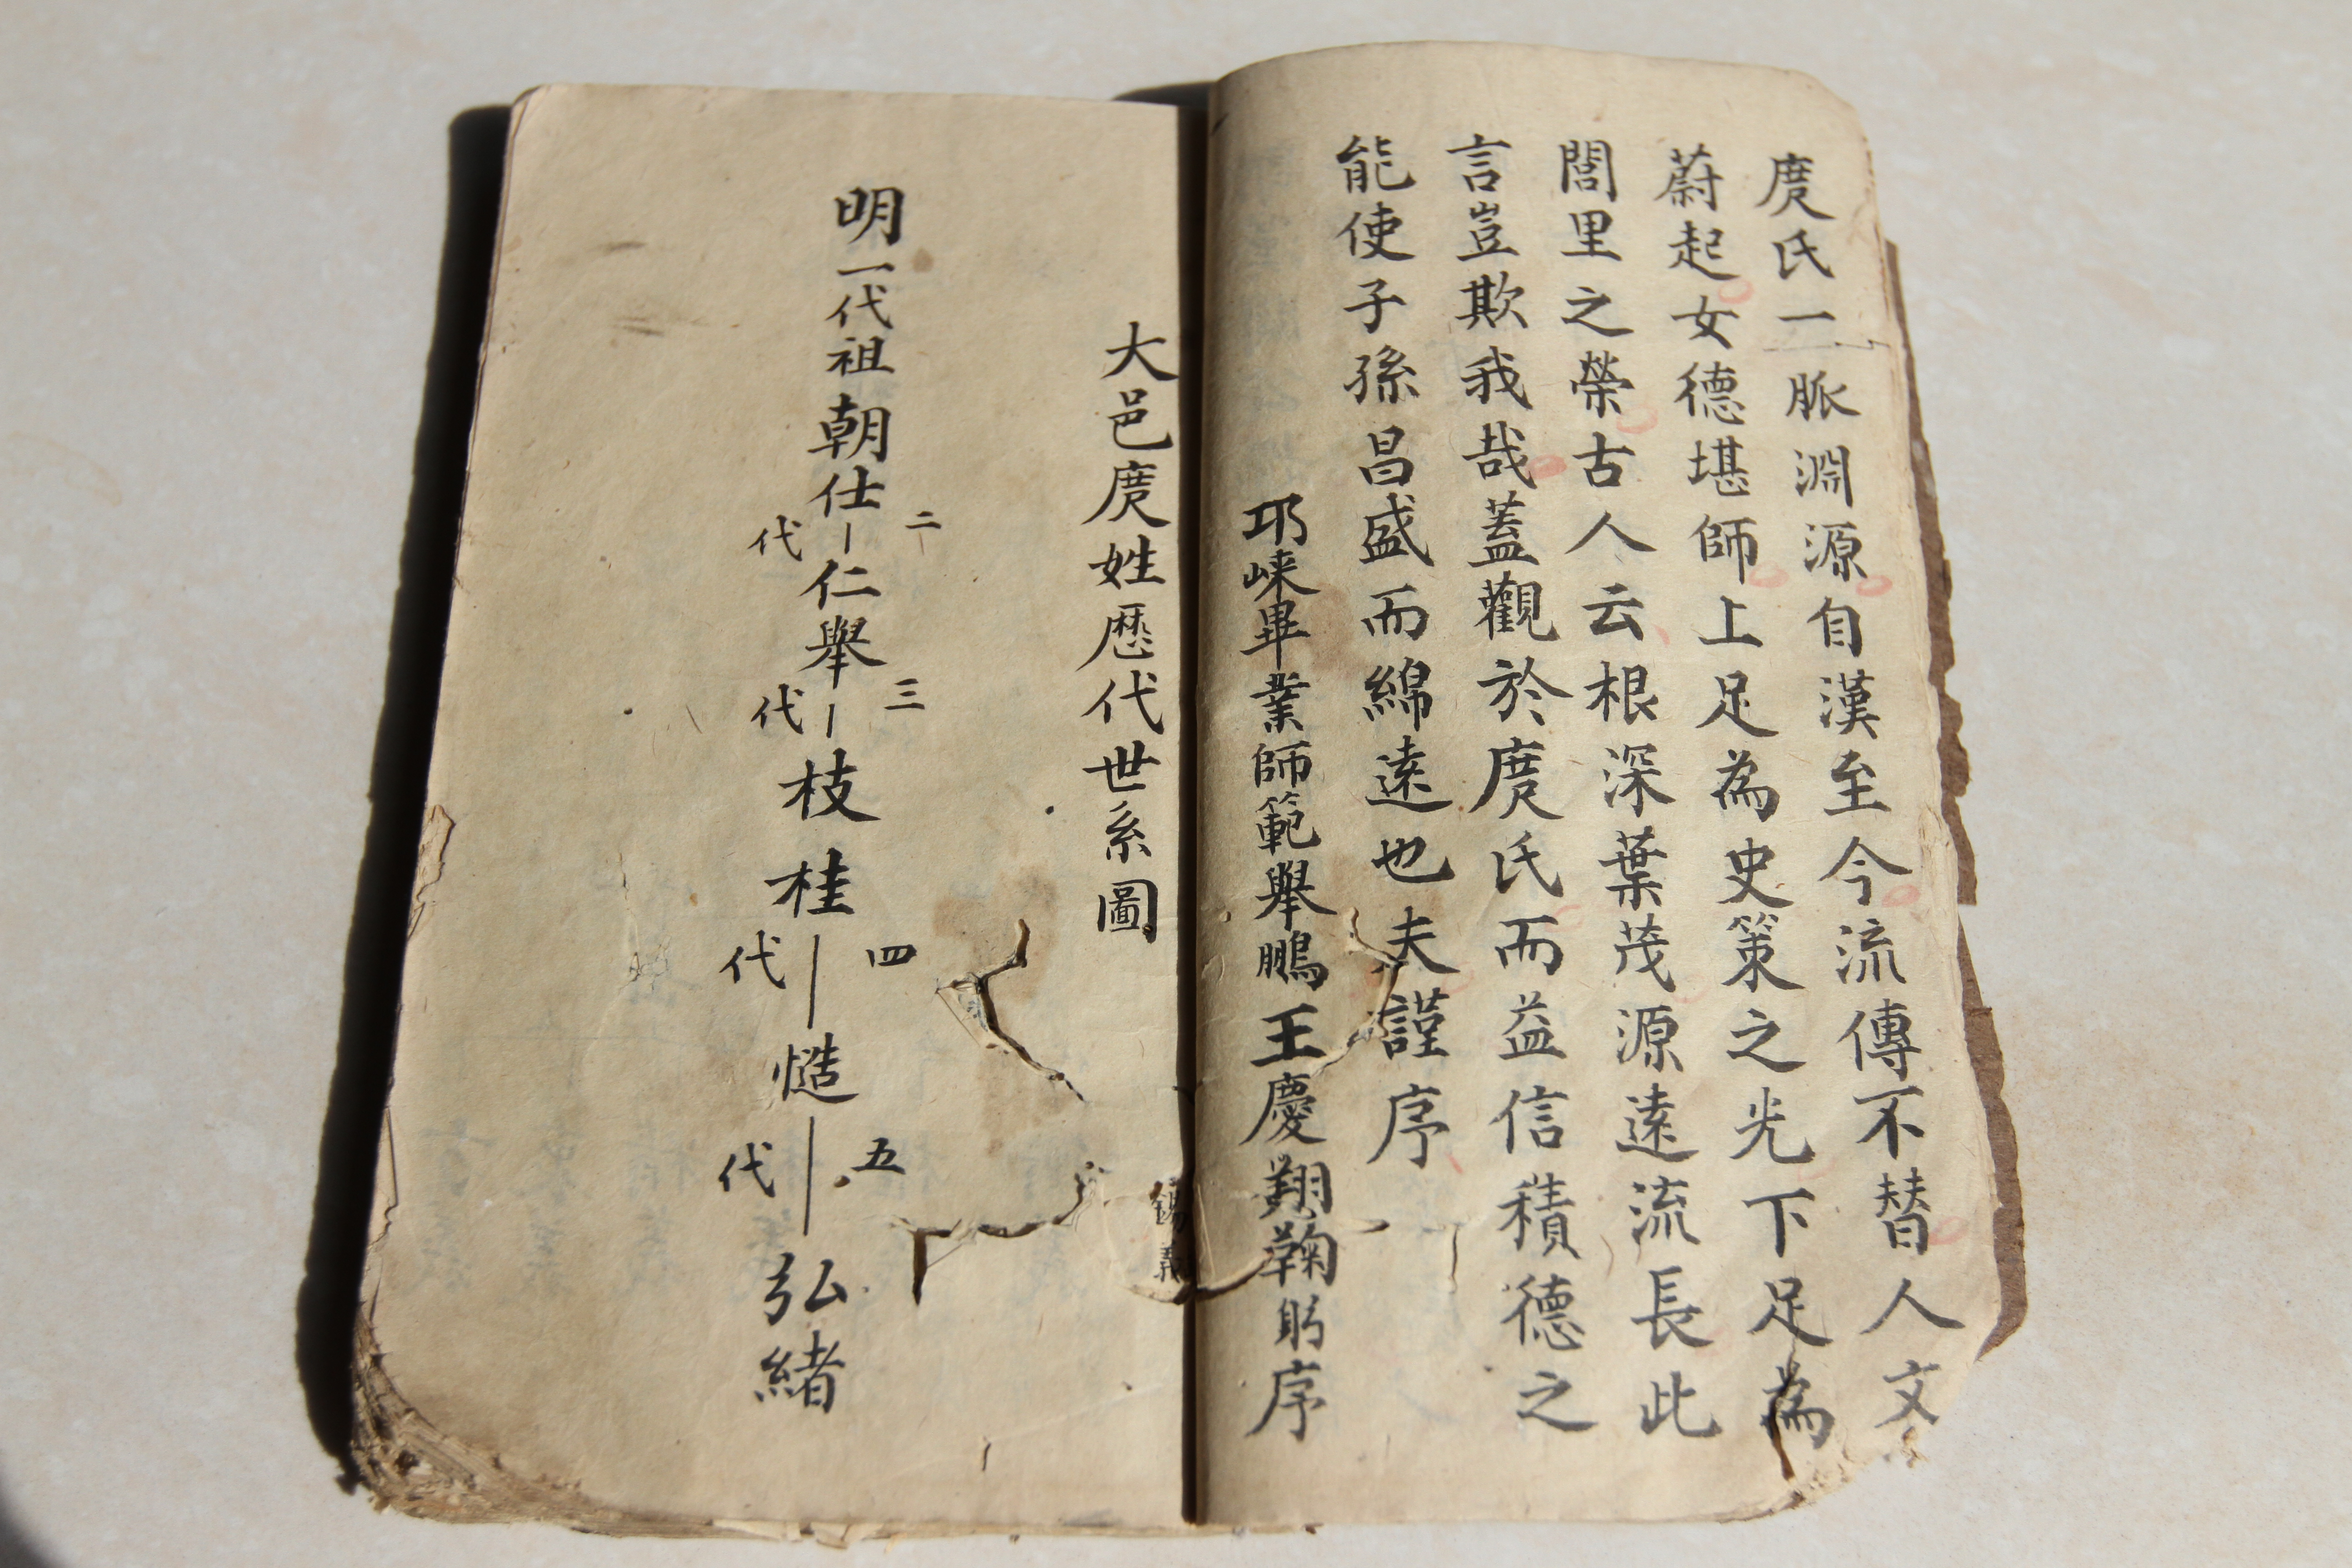 庹氏一脈淵源自漢至今流傳不替人文
蔚起女德堪師上足為史策之光下足為
閭里之榮古人云根深葉茂源遠流長此
言豈欺我哉蓋觀於庹氏而益信積德之
能使子孫昌盛而綿遠也夫謹序
邛崍畢業師範舉鵬王慶翔鞠躬序
大邑庹姓歷代世系圖
明一代祖朝仕
二代
仁舉
三代
枝桂
四代
慥
五代
弘緒
錫義